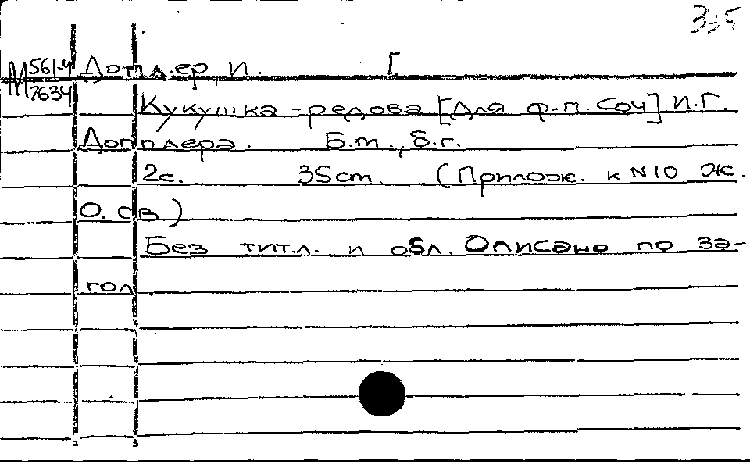 335
М 561-4 Допплер, И. Г.
7634
Кукушка-редова [Для ф.-п. Соч] И.Г.
Допплера. Б.м., б.г.
2с. 35cm. (Прилож. к N10 ж.
О. св)
Без титл. и обл. Описано по за-
гол